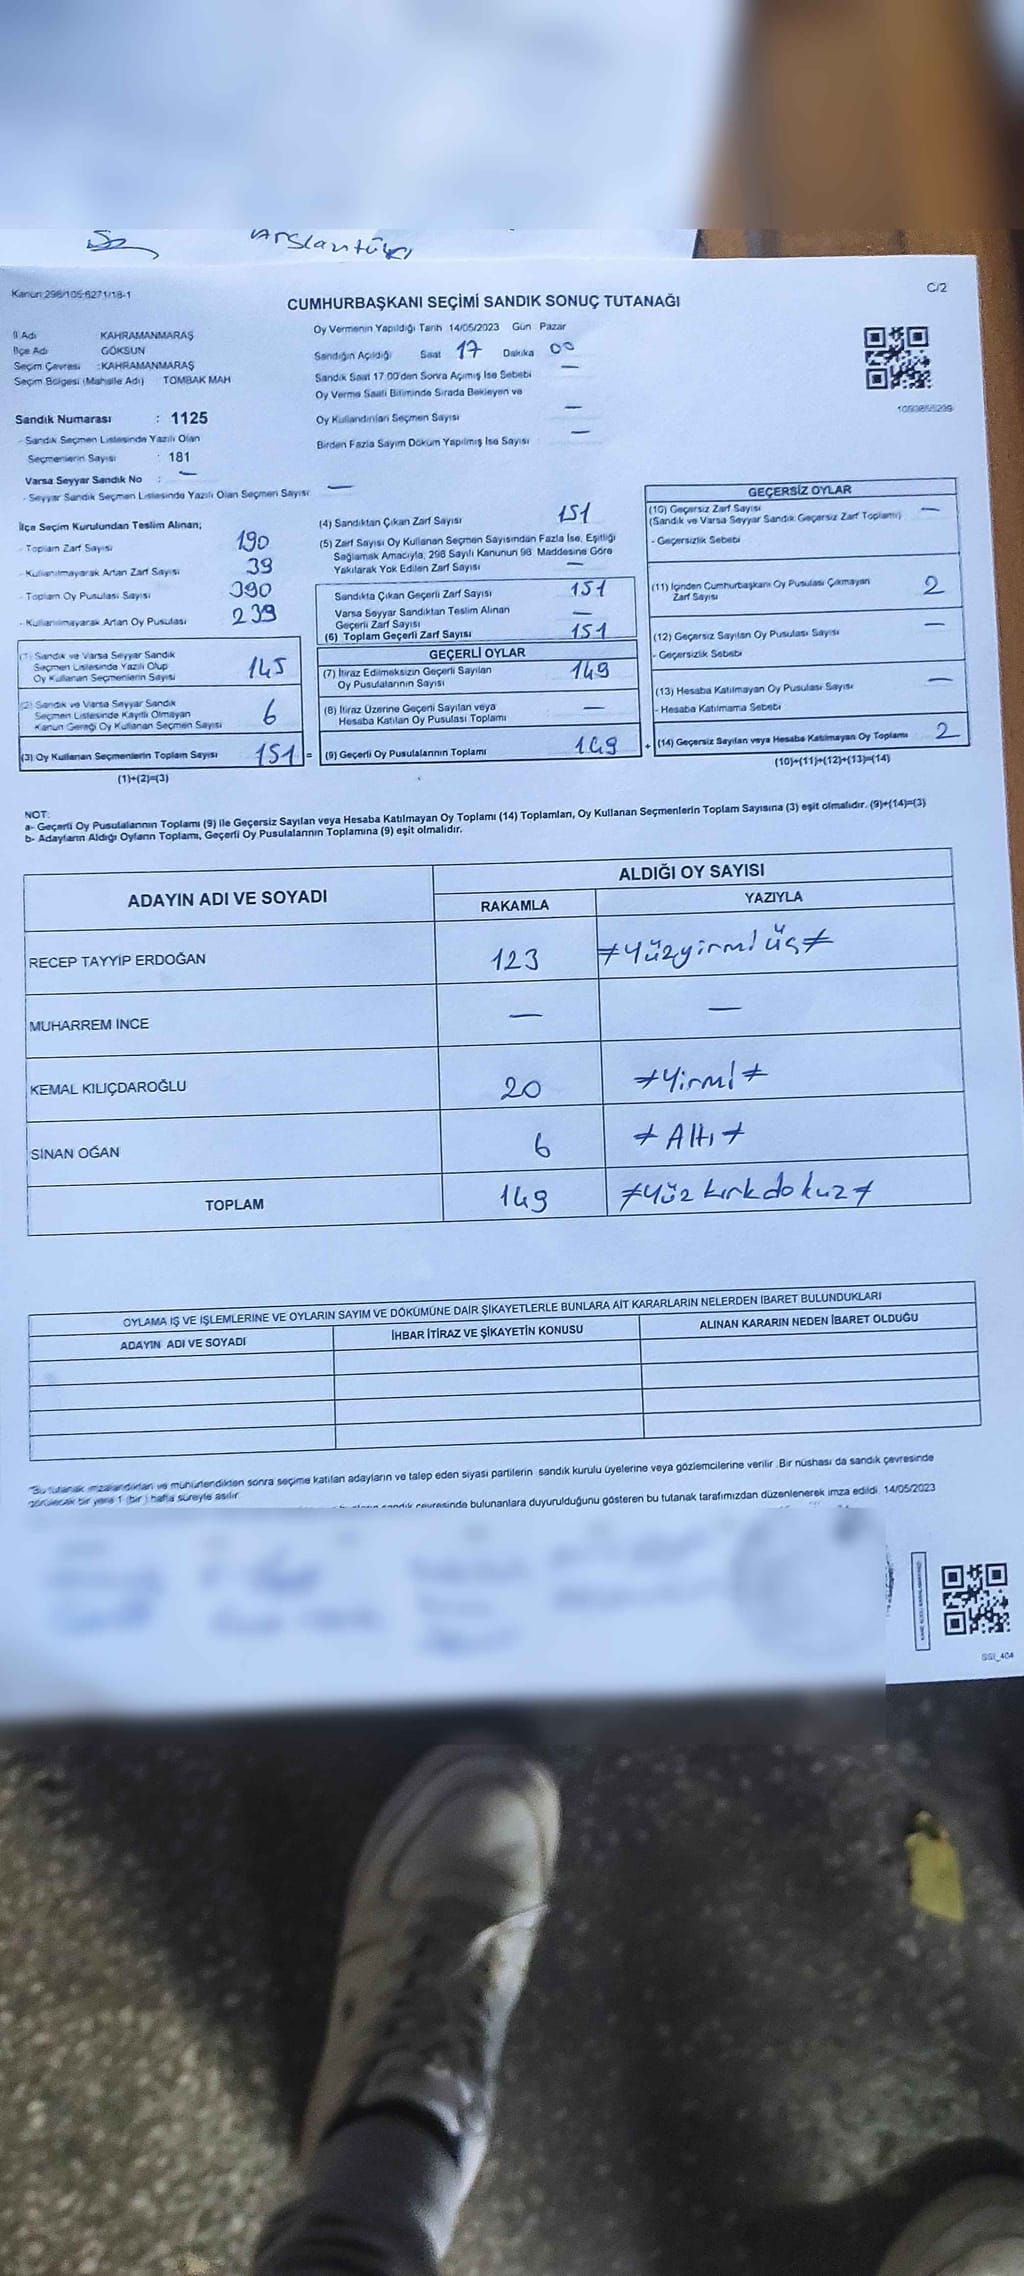 Arslantürk
Kanun:298/105-6271/18-1
C/2
CUMHURBAŞKANI SEÇİMİ SANDIK SONUÇ TUTANAĞI
İl Adı KAHRAMANMARAŞ
İlçe Adı GÖKSUN
Seçim Çevresi : KAHRAMANMARAŞ
Seçim Bölgesi (Mahalle Adı) TOMBAK MAH
Oy Vermenin Yapıldığı Tarih 14/05/2023 Gün Pazar
Sandığın Açıldığı Saat 17 Dakika 00
Sandık Saat 17.00'den Sonra Açımış İse Sebebi —
Oy Verme Saati Bitiminde Sırada Bekleyen ve
Oy Kullandırılan Seçmen Sayısı —
Birden Fazla Sayım Döküm Yapılmış İse Sayısı —
Sandık Numarası : 1125
- Sandık Seçmen Listesinde Yazılı Olan
Seçmenlerin Sayısı : 181
Varsa Seyyar Sandık No : —
- Seyyar Sandık Seçmen Listesinde Yazılı Olan Seçmen Sayısı —
İlçe Seçim Kurulundan Teslim Alınan;
- Toplam Zarf Sayısı 190
- Kullanılmayarak Artan Zarf Sayısı 39
- Toplam Oy Pusulası Sayısı 390
- Kullanılmayarak Artan Oy Pusulası 239
(1) Sandık ve Varsa Seyyar Sandık
Seçmen Listesinde Yazılı Olup
Oy Kullanan Seçmenlerin Sayısı 145
(2) Sandık ve Varsa Seyyar Sandık
Seçmen Listesinde Kayıtlı Olmayan
Kanun Gereği Oy Kullanan Seçmen Sayısı 6
(3) Oy Kullanan Seçmenlerin Toplam Sayısı 151 =
(1)+(2)=(3)
(4) Sandıktan Çıkan Zarf Sayısı 151
(5) Zarf Sayısı Oy Kullanan Seçmen Sayısından Fazla İse, Eşitliği
Sağlamak Amacıyla, 298 Sayılı Kanunun 98. Maddesine Göre
Yakılarak Yok Edilen Zarf Sayısı —
Sandıkta Çıkan Geçerli Zarf Sayısı 151
Varsa Seyyar Sandıktan Teslim Alınan
Geçerli Zarf Sayısı —
(6) Toplam Geçerli Zarf Sayısı 151
GEÇERLİ OYLAR
(7) İtiraz Edilmeksizin Geçerli Sayılan
Oy Pusulalarının Sayısı 149
(8) İtiraz Üzerine Geçerli Sayılan veya
Hesaba Katılan Oy Pusulası Toplamı —
(9) Geçerli Oy Pusulalarının Toplamı 149 +
GEÇERSİZ OYLAR
(10) Geçersiz Zarf Sayısı —
(Sandık ve Varsa Seyyar Sandık Geçersiz Zarf Toplamı)
- Geçersizlik Sebebi
(11) İçinden Cumhurbaşkanı Oy Pusulası Çıkmayan
Zarf Sayısı 2
(12) Geçersiz Sayılan Oy Pusulası Sayısı —
- Geçersizlik Sebebi
(13) Hesaba Katılmayan Oy Pusulası Sayısı —
- Hesaba Katılmama Sebebi
(14) Geçersiz Sayılan veya Hesaba Katılmayan Oy Toplamı 2
(10)+(11)+(12)+(13)=(14)
NOT:
a- Geçerli Oy Pusulalarının Toplamı (9) ile Geçersiz Sayılan veya Hesaba Katılmayan Oy Toplamı (14) Toplamları, Oy Kullanan Seçmenlerin Toplam Sayısına (3) eşit olmalıdır. (9)+(14)=(3)
b- Adayların Aldığı Oyların Toplamı, Geçerli Oy Pusulalarının Toplamına (9) eşit olmalıdır.
ADAYIN ADI VE SOYADI ALDIĞI OY SAYISI
RAKAMLA YAZIYLA
RECEP TAYYİP ERDOĞAN 123 ≠Yüzyirmi üç≠
MUHARREM İNCE — —
KEMAL KILIÇDAROĞLU 20 ≠Yirmi≠
SİNAN OĞAN 6 ≠Altı≠
TOPLAM 149 ≠Yüz kırkdokuz≠
OYLAMA İŞ VE İŞLEMLERİNE VE OYLARIN SAYIM VE DÖKÜMÜNE DAİR ŞİKAYETLERLE BUNLARA AİT KARARLARIN NELERDEN İBARET BULUNDUKLARI
ADAYIN ADI VE SOYADI İHBAR İTİRAZ VE ŞİKAYETİN KONUSU ALINAN KARARIN NEDEN İBARET OLDUĞU
"Bu tutanak imzalandıktan ve mühürlendikten sonra seçime katılan adayların ve talep eden siyasi partilerin sandık kurulu üyelerine veya gözlemcilerine verilir .Bir nüshası da sandık çevresinde
görülecek bir yere 1 (bir) hafta süreyle asılır
sandık çevresinde bulunanlara duyurulduğunu gösteren bu tutanak tarafımızdan düzenlenerek imza edildi. 14/05/2023
SSI_404